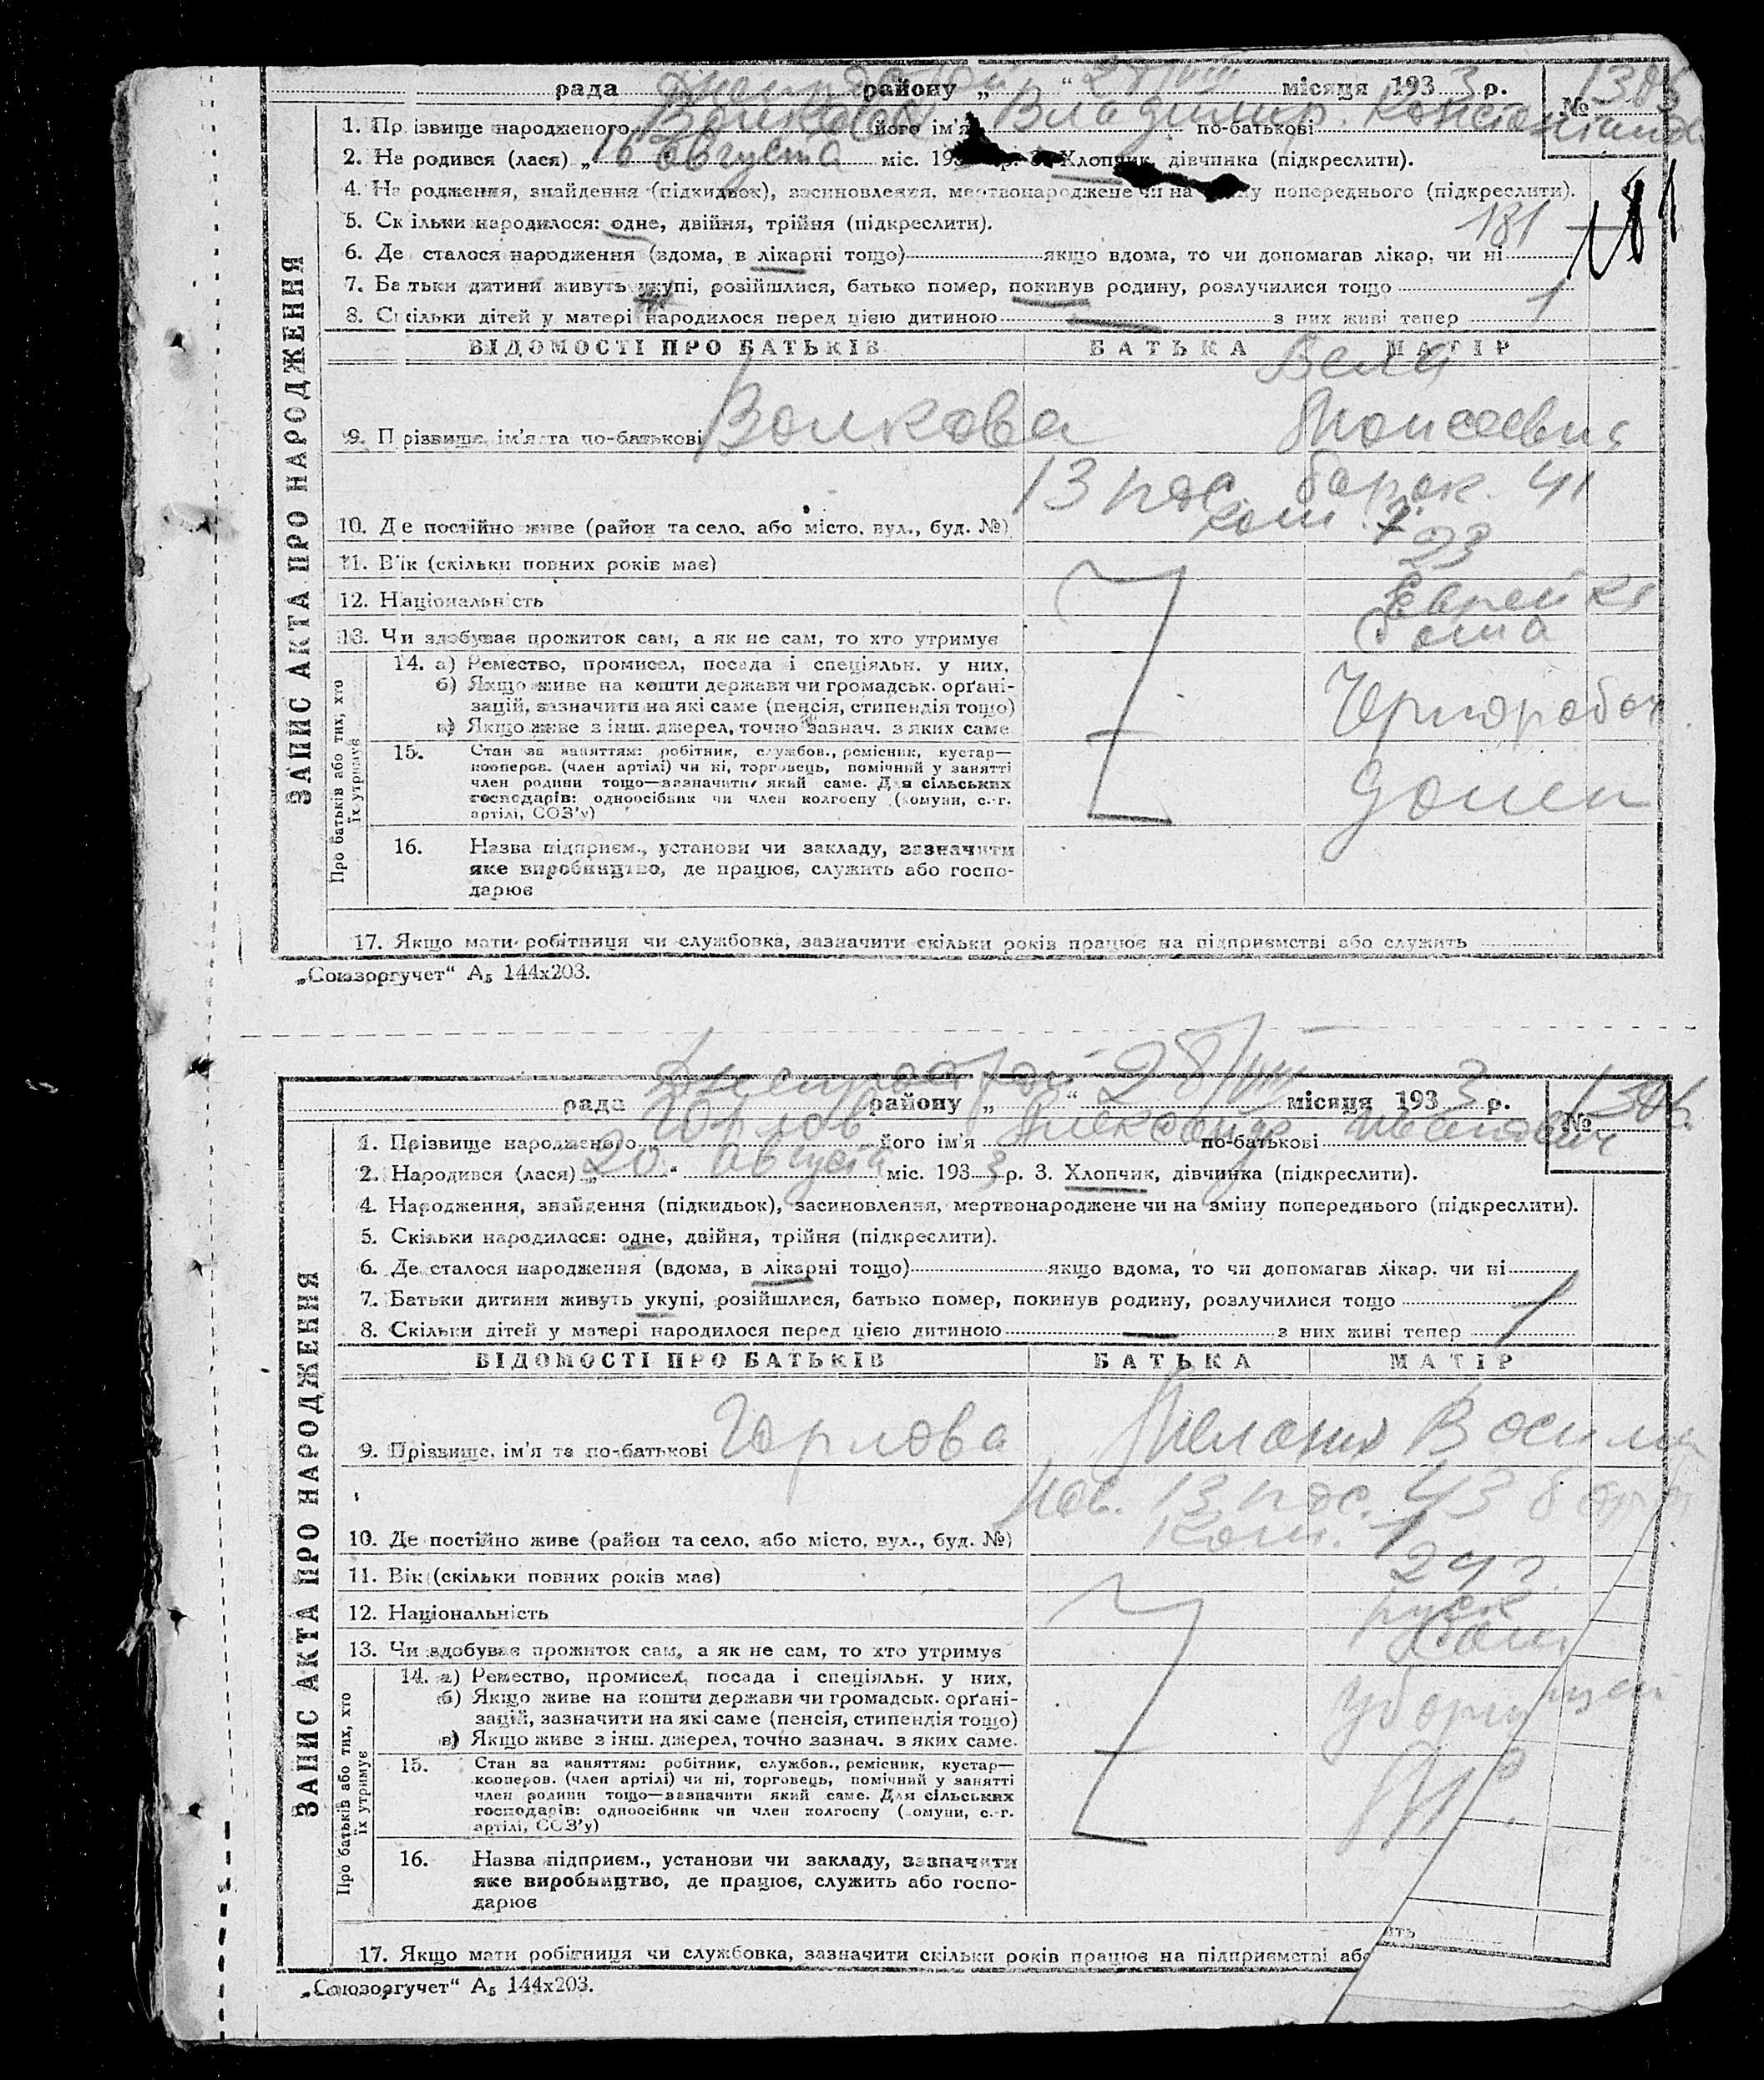 рада Днепрострой району „ “ 28/VIII місяця 1933 р.
№ 1385
1. Прізвище народженого Волков його ім'я Владимир по-батькові Константинов
2. Народився (лася) „16 августа міс. 193 р. 3. Хлопчик, дівчинка (підкреслити).
4. Народження, знайдення (підкидьок), засиновлення, мертвонароджене чи на зміну попереднього (підкреслити).
5. Скільки народилося: одне, двійня, трійня (підкреслити).
181
6. Де сталося народження (вдома, в лікарні тощо) якщо вдома, то чи допомагав лікар. чи ні
7. Батьки дитини живуть укупі, розійшлися, батько помер, покинув родину, розлучилися тощо
8. Скільки дітей у матері народилося перед цією дитиною — з них живі тепер 1
ЗАПИС АКТА ПРО НАРОДЖЕННЯ
ВІДОМОСТІ ПРО БАТЬКІВ БАТЬКА МАТІР
9. Прізвище, ім'я та по-батькові Волкова Бела Моисеевна
10. Де постійно живе (район та село, або місто, вул., буд. №) 13 пос. барак. 41 ком. 7
11. Вік (скільки повних років має) 23
12. Національність Еврейка
13. Чи здобуває прожиток сам, а як не сам, то хто утримує Сама
Про батьків або тих, хто їх утримує
14. а) Ремество, промисел, посада і спеціяльн. у них,
б) Якщо живе на кошти держави чи громадськ. орґані-
зацій, зазначити на які саме (пенсія, стипендія тощо)
в) Якщо живе з інш. джерел, точно зазнач. з яких саме
Чернорабоч
15. Стан за заняттям: робітник, службов., ремісник, кустар—
кооперов. (член артілі) чи ні, торговець, помічний у занятті
член родини тощо—зазначити який саме. Для сільських
господарів: одноосібник чи член колгоспу (комуни, с.-г.
артілі, СОЗ'у)
16. Назва підприєм., установи чи закладу, зазначити
яке виробництво, де працює, служить або госпо-
дарює
17. Якщо мати робітниця чи службовка, зазначити скільки років працює на підприємстві або служить
„Союзоргучет“ А5 144х203.
рада Днепрострой району „ “ 28/VIII місяця 1933 р.
№ 1386
1. Прізвище народженого Горлов його ім'я Александр по-батькові Иванович
2. Народився (лася) „20“ августа міс. 1933 р. 3. Хлопчик, дівчинка (підкреслити).
4. Народження, знайдення (підкидьок), засиновлення, мертвонароджене чи на зміну попереднього (підкреслити).
5. Скільки народилося: одне, двійня, трійня (підкреслити).
6. Де сталося народження (вдома, в лікарні тощо) якщо вдома, то чи допомагав лікар. чи ні
7. Батьки дитини живуть укупі, розійшлися, батько помер, покинув родину, розлучилися тощо
8. Скільки дітей у матері народилося перед цією дитиною — з них живі тепер 1
ЗАПИС АКТА ПРО НАРОДЖЕННЯ
ВІДОМОСТІ ПРО БАТЬКІВ БАТЬКА МАТІР
9. Прізвище, ім'я та по-батькові Горлова Мелания Василь
10. Де постійно живе (район та село, або місто, вул., буд. №) 13 пос. 43 бар ком. 1
11. Вік (скільки повних років має) 24 г.
12. Національність руск
13. Чи здобуває прожиток сам, а як не сам, то хто утримує Сама
Про батьків або тих, хто їх утримує
14. а) Ремество, промисел, посада і спеціяльн. у них,
б) Якщо живе на кошти держави чи громадськ. орґані-
зацій, зазначити на які саме (пенсія, стипендія тощо)
в) Якщо живе з інш. джерел, точно зазнач. з яких саме.
15. Стан за заняттям: робітник, службов., ремісник, кустар—
кооперов. (член артілі) чи ні, торговець, помічний у занятті
член родини тощо—зазначити який саме. Для сільських
господарів: одноосібник чи член колгоспу (комуни, с.-г.
артілі, СОЗ'у)
16. Назва підприєм., установи чи закладу, зазначити
яке виробництво, де працює, служить або госпо-
дарює
17. Якщо мати робітниця чи службовка, зазначити скільки років працює на підприємстві або
„Союзоргучет“ А5 144х203.